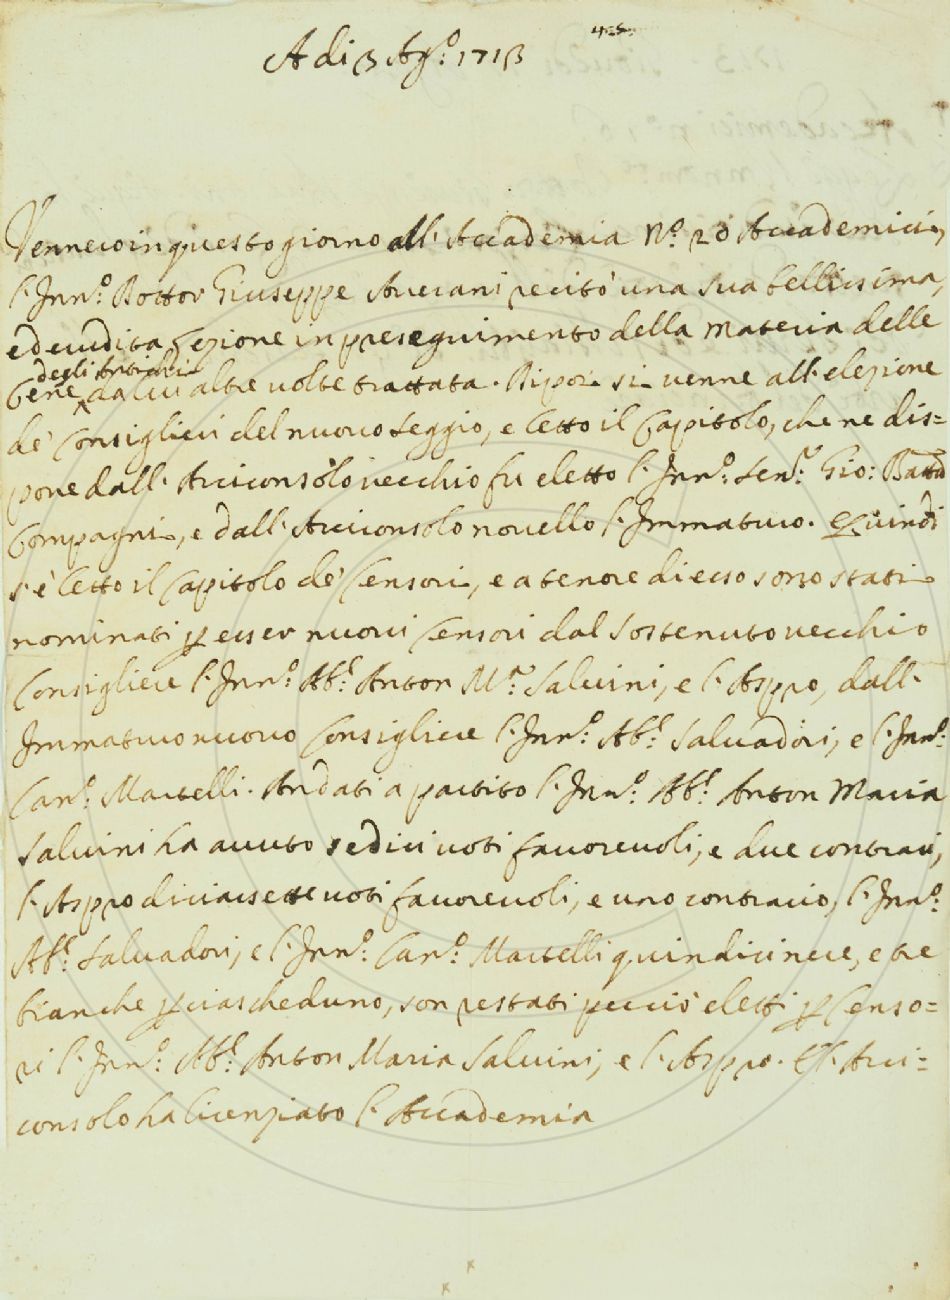 A dì 3 Ag.º 1713
Vennero in questo giorno all'Accademia N.º 20 Accademici,
l'Inn.º Dottor Giuseppe Averani recitò una sua bellissima,
ed erudita Lezione in proseguimento della materia delle
degli Antichi
Cene da lui altre volte trattata. Dipoi si venne all'elezione
de' Consiglieri del nuovo Seggio, e letto il Capitolo, che ne dis=
pone dall'Arciconsolo vecchio fu eletto l'Inn.º Sen.r Gio: Batta
Compagni, e dall'Arciconsolo novello l'Immaturo. Quindi
s'è letto il Capitolo de' Censori, e a tenore di esso sono stati
nominati p esser nuovi Censori dal Sostenuto vecchio
Consigliere l'Inn.º Ab.e Anton M.a Salvini, e l'Aspro, dall'
Immaturo nuovo Consigliere l'Inn.º Ab.e Salvadori, e l'Inn.º
Can.º Martelli. Andati a partito l'Inn.º Ab.e Anton Maria
Salvini ha avuto sedici voti favorevoli, e due contrari,
l'Aspro diciassette voti favorevoli, e uno contrario, l'Inn.º
Ab.e Salvadori, e l'Inn.º Can.º Martelli quindici nere, e tre
bianche p ciascheduno, son restati perciò eletti p Censo=
ri l'Inn.º Ab.e Anton Maria Salvini, e l'Aspro. E l'Arci=
consolo ha licenziato l'Accademia